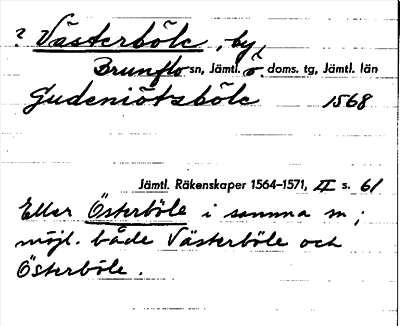 ? Västerböle, by,
Brunflo sn, Jämtl. ö. doms. tg, Jämtl. län
Gudeniötsböle 1568
Jämtl. Räkenskaper 1564–1571, II s. 61
Eller Österböle i samma sn;
möjl. både Västerböle och
Österböle.